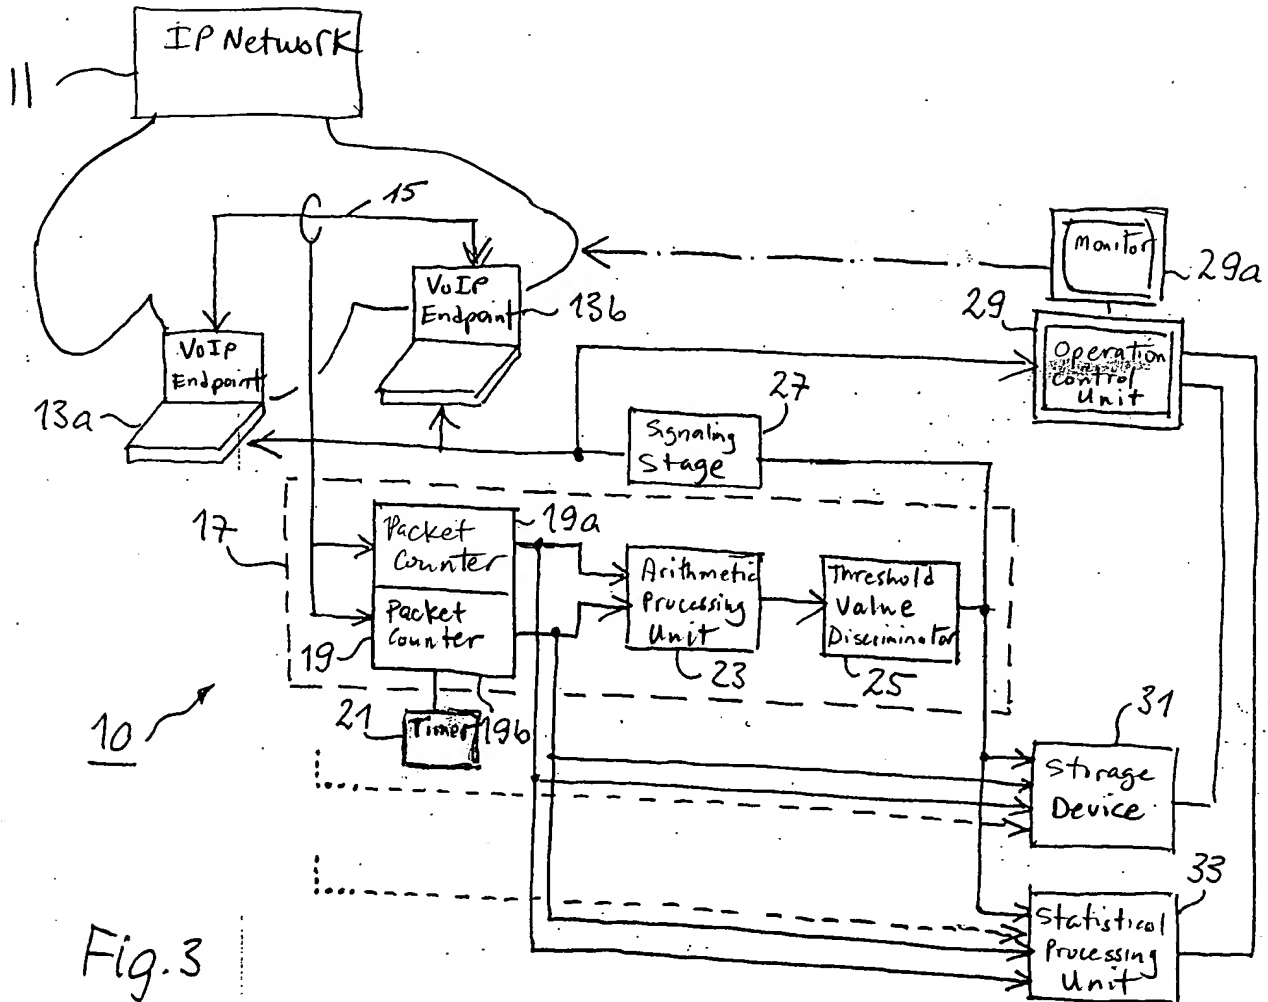 IP Network
11
15
Monitor
29a
VoIP
Endpoint
13b
29
Operation
Control
Unit
VoIP
Endpoint
13a
27
Signaling
Stage
17
19a
Packet
Counter
Packet
Counter
19
Arithmetic
Processing
Unit
23
Threshold
Value
Discriminator
25
21
Timer
19b
10
31
Storage
Device
33
Statistical
Processing
Unit
Fig. 3